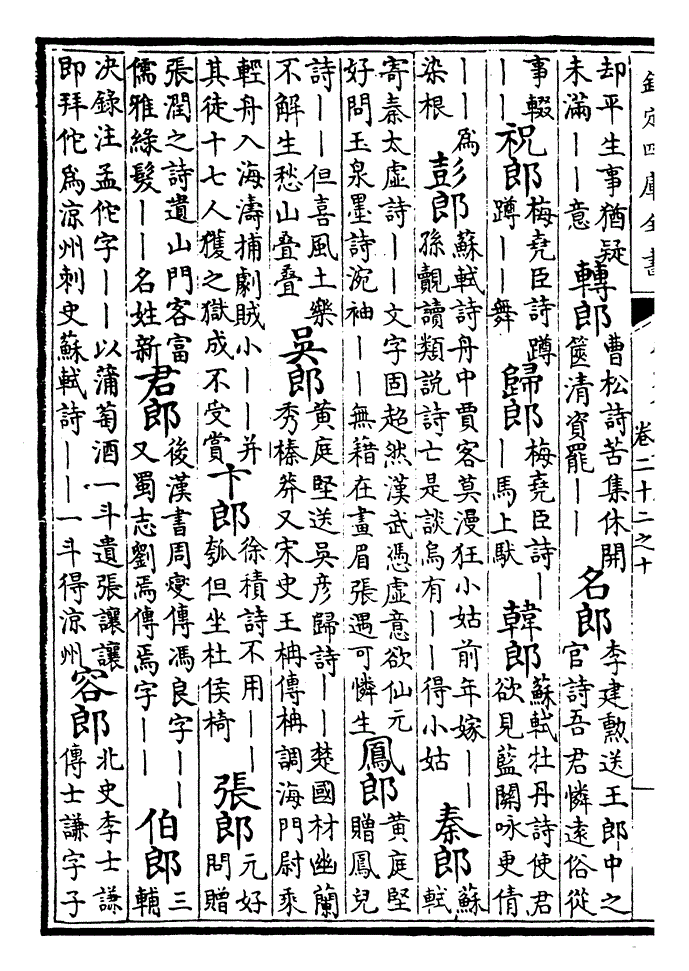 欽定四庫全書
卷二十二之十
却平生事猶疑
未滿｜｜意
轉郎
曹松詩苦集休開
篋清資罷｜｜
名郎
李建勲送王郎中之
官詩吾君憐遠俗從
事輟
｜｜
祝郎
梅堯臣詩蹲
蹲｜｜舞
歸郎
梅堯臣詩｜
｜馬上馱
韓郎
蘇軾牡丹詩使君
欲見藍關咏更倩
｜｜為
染根
彭郎
蘇軾詩舟中賈客莫漫狂小姑前年嫁｜｜
孫覿讀類說詩亡是談烏有｜｜得小姑
秦郎
蘇
軾
寄秦太虛詩｜｜文字固超然漢武憑虛意欲仙元
好問玉泉墨詩涴袖｜｜無籍在畫眉張遇可憐生
鳳郎
黃庭堅
贈鳳兒
詩｜｜但喜風土樂
不解生愁山疊疊
吳郎
黃庭堅送吳彥歸詩｜｜楚國材幽蘭
秀榛莽又宋史王柟傳柟調海門尉乘
輕舟入海濤捕劇賊小｜｜并
其徒十七人獲之獄成不受賞
卞郎
徐積詩不用｜｜
瓠但坐杜侯椅
張郎
元好
問贈
張潤之詩遺山門客富
儒雅綠髮｜｜名姓新
君郎
後漢書周燮傳馮良字｜｜
又蜀志劉焉傳焉字｜｜
伯郎
三
輔
决錄注孟佗字｜｜以蒲萄酒一斗遺張讓讓
即拜佗為涼州刺史蘇軾詩｜｜一斗得涼州
容郎
北史李士謙
傳士謙字子